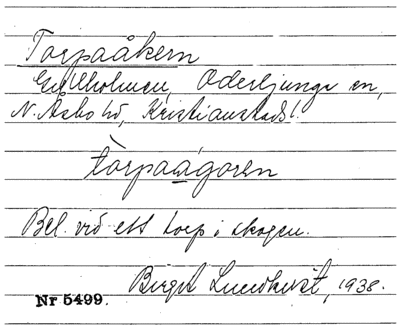 Torpaåkern
Gyllholmen, Oderljunga sn,
N. Åsbo hd, Kristianstads l.
tòrpaágoren
Bel. vid ett torp i skogen.
Birgit Lundkvist, 1938.
Nr 5499.